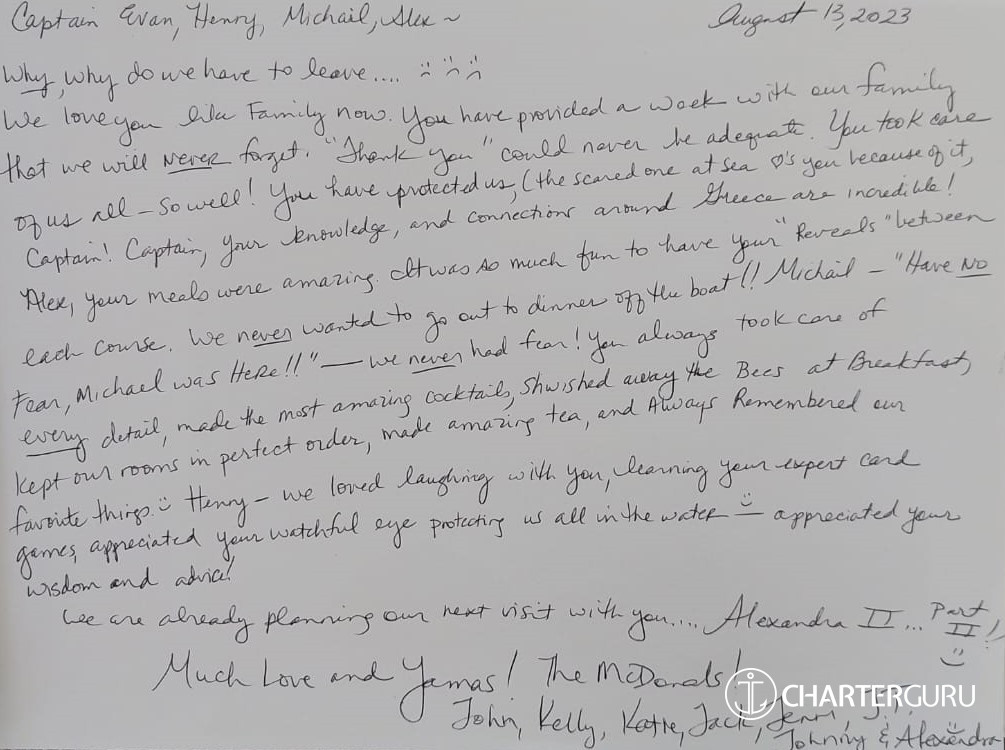 Captain Evan, Henry, Michail, Alex ~ August 13, 2023
Why, why do we have to leave....
We love you like Family now. You have provided a week with our family
that we will NEVER forget. "Thank you" could never be adequate. You took care
of us all - so well! You have protected us, (the scared one at sea ♡'s you because of it,
Captain! Captain, your knowledge, and connections around Greece are incredible!
Alex, your meals were amazing. It was so much fun to have your "Reveals" between
each course. We never wanted to go out to dinner off the boat!! Michail - "Have NO
Fear, Michael was Here!!" — we never had fear! You always took care of
every detail, made the most amazing cocktails, Shwished away the Bees at Breakfast,
kept our rooms in perfect order, made amazing tea, and Always Remembered our
favorite things. Henry - we loved laughing with you, learning your expert card
games, appreciated your watchful eye protecting us all in the water — appreciated your
wisdom and advice!
We are already planning our next visit with you.... Alexandra II... Part
II!
Much Love and Yamas! The McDonalds!
John, Kelly, Katie, Jack, Jenni, J.T.,
Johnny & Alexandra
CHARTERGURU